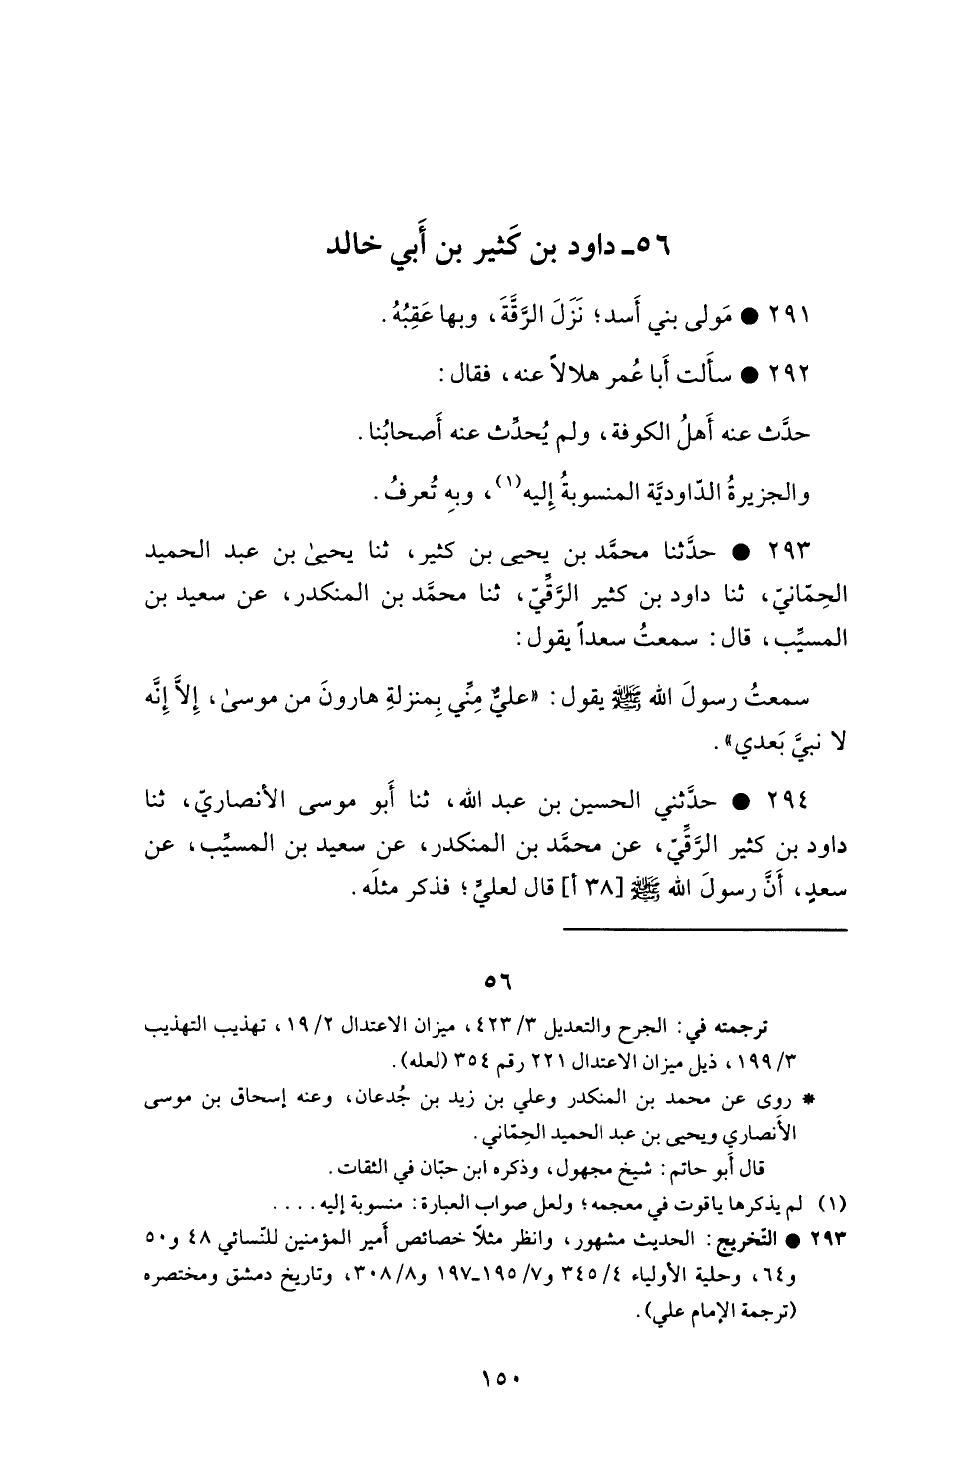 ٥٦ـ داود بن كَثير بن أَبي خالد
٢٩١ ● مَولى بني أَسد؛ نَزَلَ الرَّقَّةَ، وبها عَقِبُهُ.
٢٩٢ ● سأَلت أَبا عُمر هلالاً عنه، فقال:
حدَّث عنه أَهلُ الكوفة، ولم يُحدِّث عنه أَصحابُنا.
والجزيرةُ الدّاوديَّة المنسوبةُ إِليه(١)، وبهِ تُعرفُ.
٢٩٣ ● حدَّثنا محمَّد بن يحيى بن كثير، ثنا يحيىٰ بن عبد الحميد
الحِمّانيّ، ثنا داود بن كثير الرَّقِّيّ، ثنا محمَّد بن المنكدر، عن سعيد بن
المسيِّب، قال: سمعتُ سعداً يقول:
سمعتُ رسولَ الله ﷺ يقول: «عليٌّ مِنِّي بِمنزلةِ هارونَ من موسىٰ، إِلاَّ إِنَّه
لا نبيَّ بَعدي».
٢٩٤ ● حدَّثني الحسين بن عبد الله، ثنا أَبو موسى الأنصاريّ، ثنا
داود بن كثير الرَّقِّيّ، عن محمَّد بن المنكدر، عن سعيد بن المسيِّب، عن
سعدٍ، أَنَّ رسولَ الله ﷺ [٣٨ أ] قال لعليٍّ؛ فذكر مثلَه.
٥٦
ترجمته في: الجرح والتعديل ٣/ ٤٢٣، ميزان الاعتدال ٢/ ١٩، تهذيب التهذيب
٣/ ١٩٩، ذيل ميزان الاعتدال ٢٢١ رقم ٣٥٤ (لعله).
* روى عن محمد بن المنكدر وعلي بن زيد بن جُدعان، وعنه إسحاق بن موسى
الأنصاري ويحيى بن عبد الحميد الحِمّاني.
قال أبو حاتم: شيخ مجهول، وذكره ابن حبّان في الثقات.
(١) لم يذكرها ياقوت في معجمه؛ ولعل صواب العبارة: منسوبة إليه....
٢٩٣ ● التّخريج: الحديث مشهور، وانظر مثلاً خصائص أمير المؤمنين للنّسائي ٤٨ و٥٠
و٦٤، وحلية الأولياء ٤/ ٣٤٥ و٧/ ١٩٥ـ١٩٧ و٨/ ٣٠٨، وتاريخ دمشق ومختصره
(ترجمة الإمام علي).
١٥٠